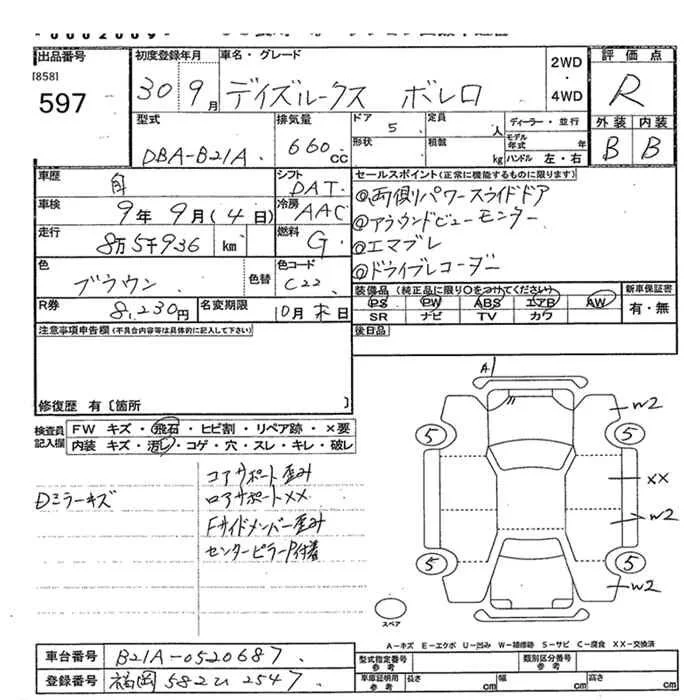 出品番号
[858]
597
初度登録年月
30 9月
車名・グレード
デイズルークス ボレロ
2WD
・
4WD
評価点
R
外装 内装
B B
型式
DBA-B21A
排気量
660cc
ドア 5
定員 人
形状
積載 kg
ディーラー・並行
モデル年式 年
ハンドル 左・右
車歴 自
シフト DAT
車検 9年9月(4日)
冷房 AAC
走行 8万5千936 km
燃料 G
色 ブラウン 色替
色コード C22
R券 8,230円
名変期限 10月末日
セールスポイント(正常に機能するものに限ります)
◎両側パワースライドドア
◎アラウンドビューモニター
◎エマブレ
◎ドライブレコーダー
装備品(純正品に限り○をつけてください)
PS PW ABS エアB AW
SR ナビ TV カワ
新車保証書
有・無
後日品
注意事項申告欄(不具合内容等は具体的に記入して下さい)
修復歴 有〔箇所 〕
検査員記入欄
FW キズ・飛石・ヒビ割・リペア跡・×要
内装 キズ・汚レ・コゲ・穴・スレ・キレ・破レ
Dミラーキズ
コアサポート歪み
ロアサポートXX
Fサイドメンバー歪み
センターピラーP付着
A1
W2
5 5
XX
W2
5 5
W2
スペア
A-キズ E-エクボ U-凹み W-補修跡 S-サビ C-腐食 XX-交換済
車台番号 B21A-0520687
登録番号 福岡582ひ2547
型式指定番号 参考
類別区分番号 参考
車庫証明用 参考
長さ cm
幅 cm
高さ cm